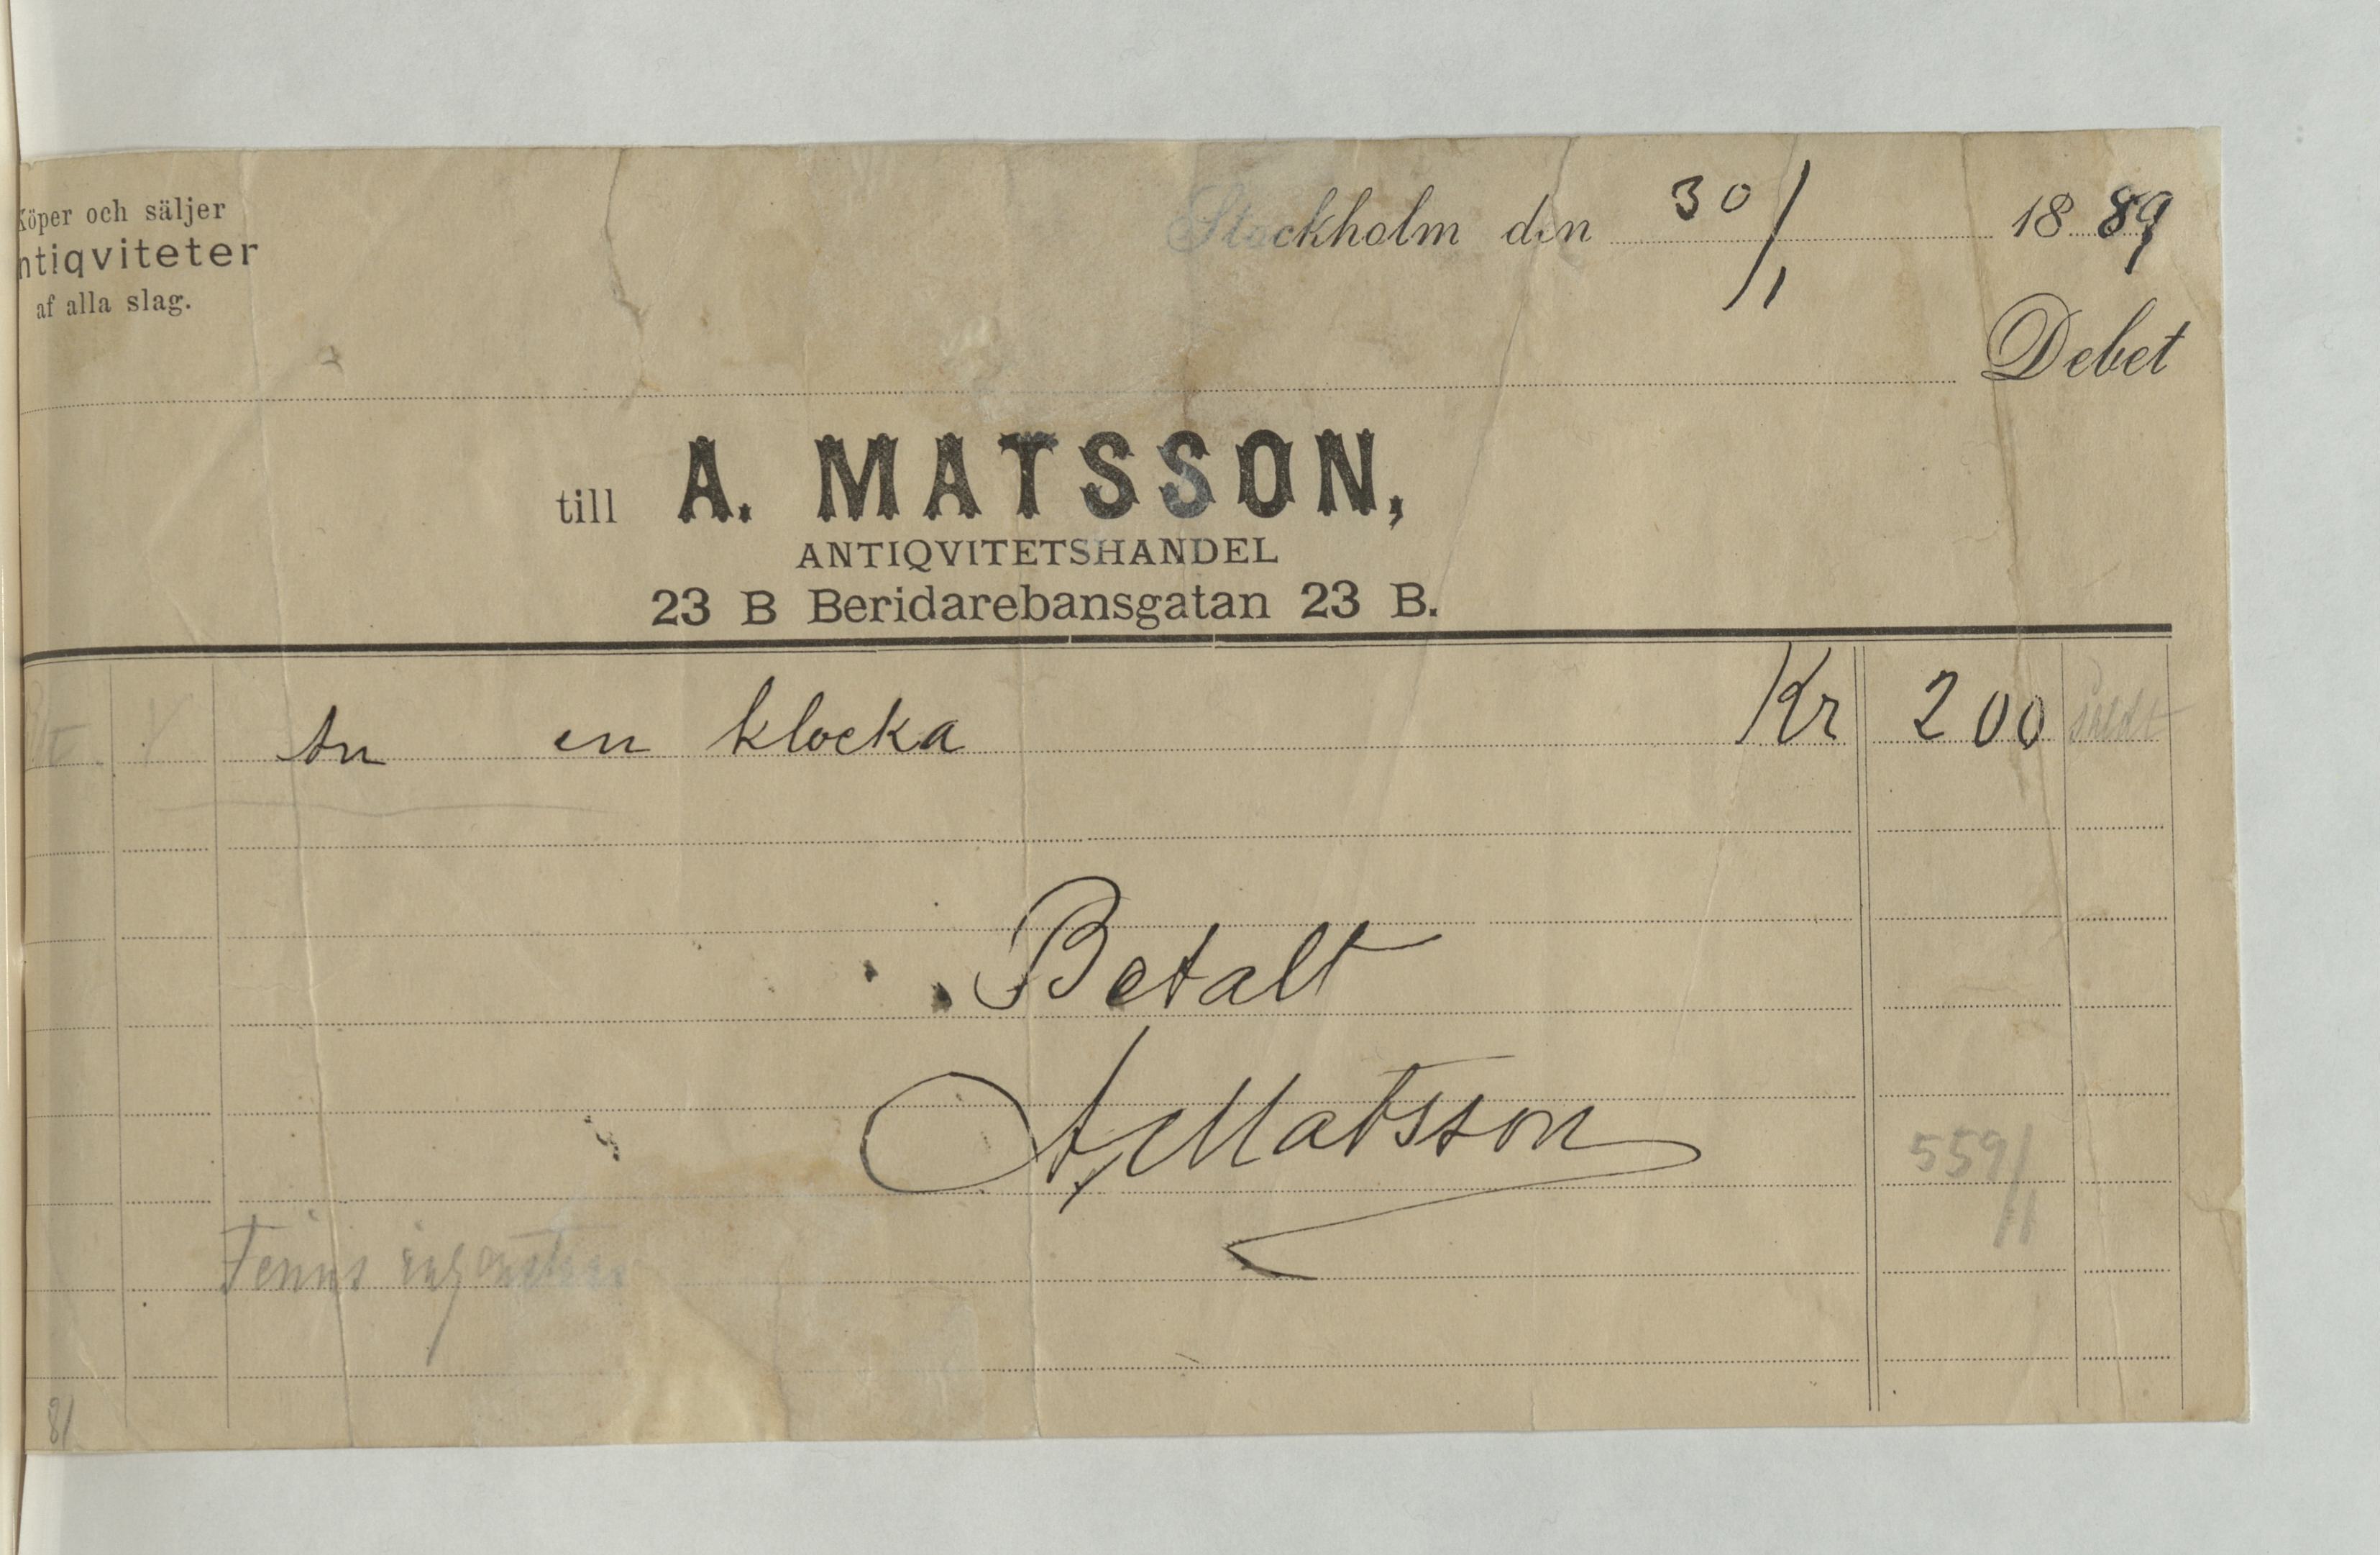 Köper och säljer
ntiqviteter
af alla slag.
Stockholm den 30/1 1889
Debet
till A. MATSSON,
ANTIQVITETSHANDEL
23 B Beridarebansgatan 23 B.
An en klocka Kr 200
Betalt
A. Matsson
559/11
Fenns
81